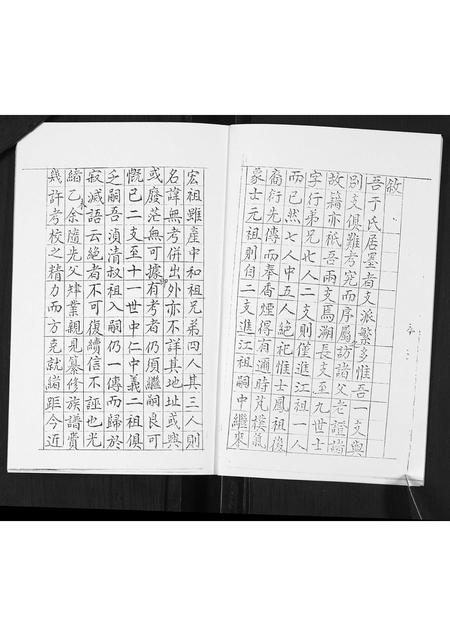 敘
吾于氏居墨者支派繁多惟吾一支與
別支俱難考究而序屬訪諸父老證諸
故籍亦祇吾兩支焉溯長支至九世士
字行弟兄七人二支則僅進江祖一人
而已然七人中五人絕祀惟士鳳祖後
裔衍先傳而奉香煙得有適時
士元祖則自二支進江祖嗣中繼來
宏祖雖產中和祖兄弟四人其三人則
名諱無考併出外亦不詳其地址或與
或廢茫無可據即有考者仍須繼嗣良可
慨已二支至十一世中仁中義二祖俱
乏嗣吾濆清叔祖入嗣仍一傳而歸於
寂滅語云絕者不可復續信不誣也光
緒乙未余隨先父肄業親見纂修族譜費
幾許考校之精力而方克就緒距今近